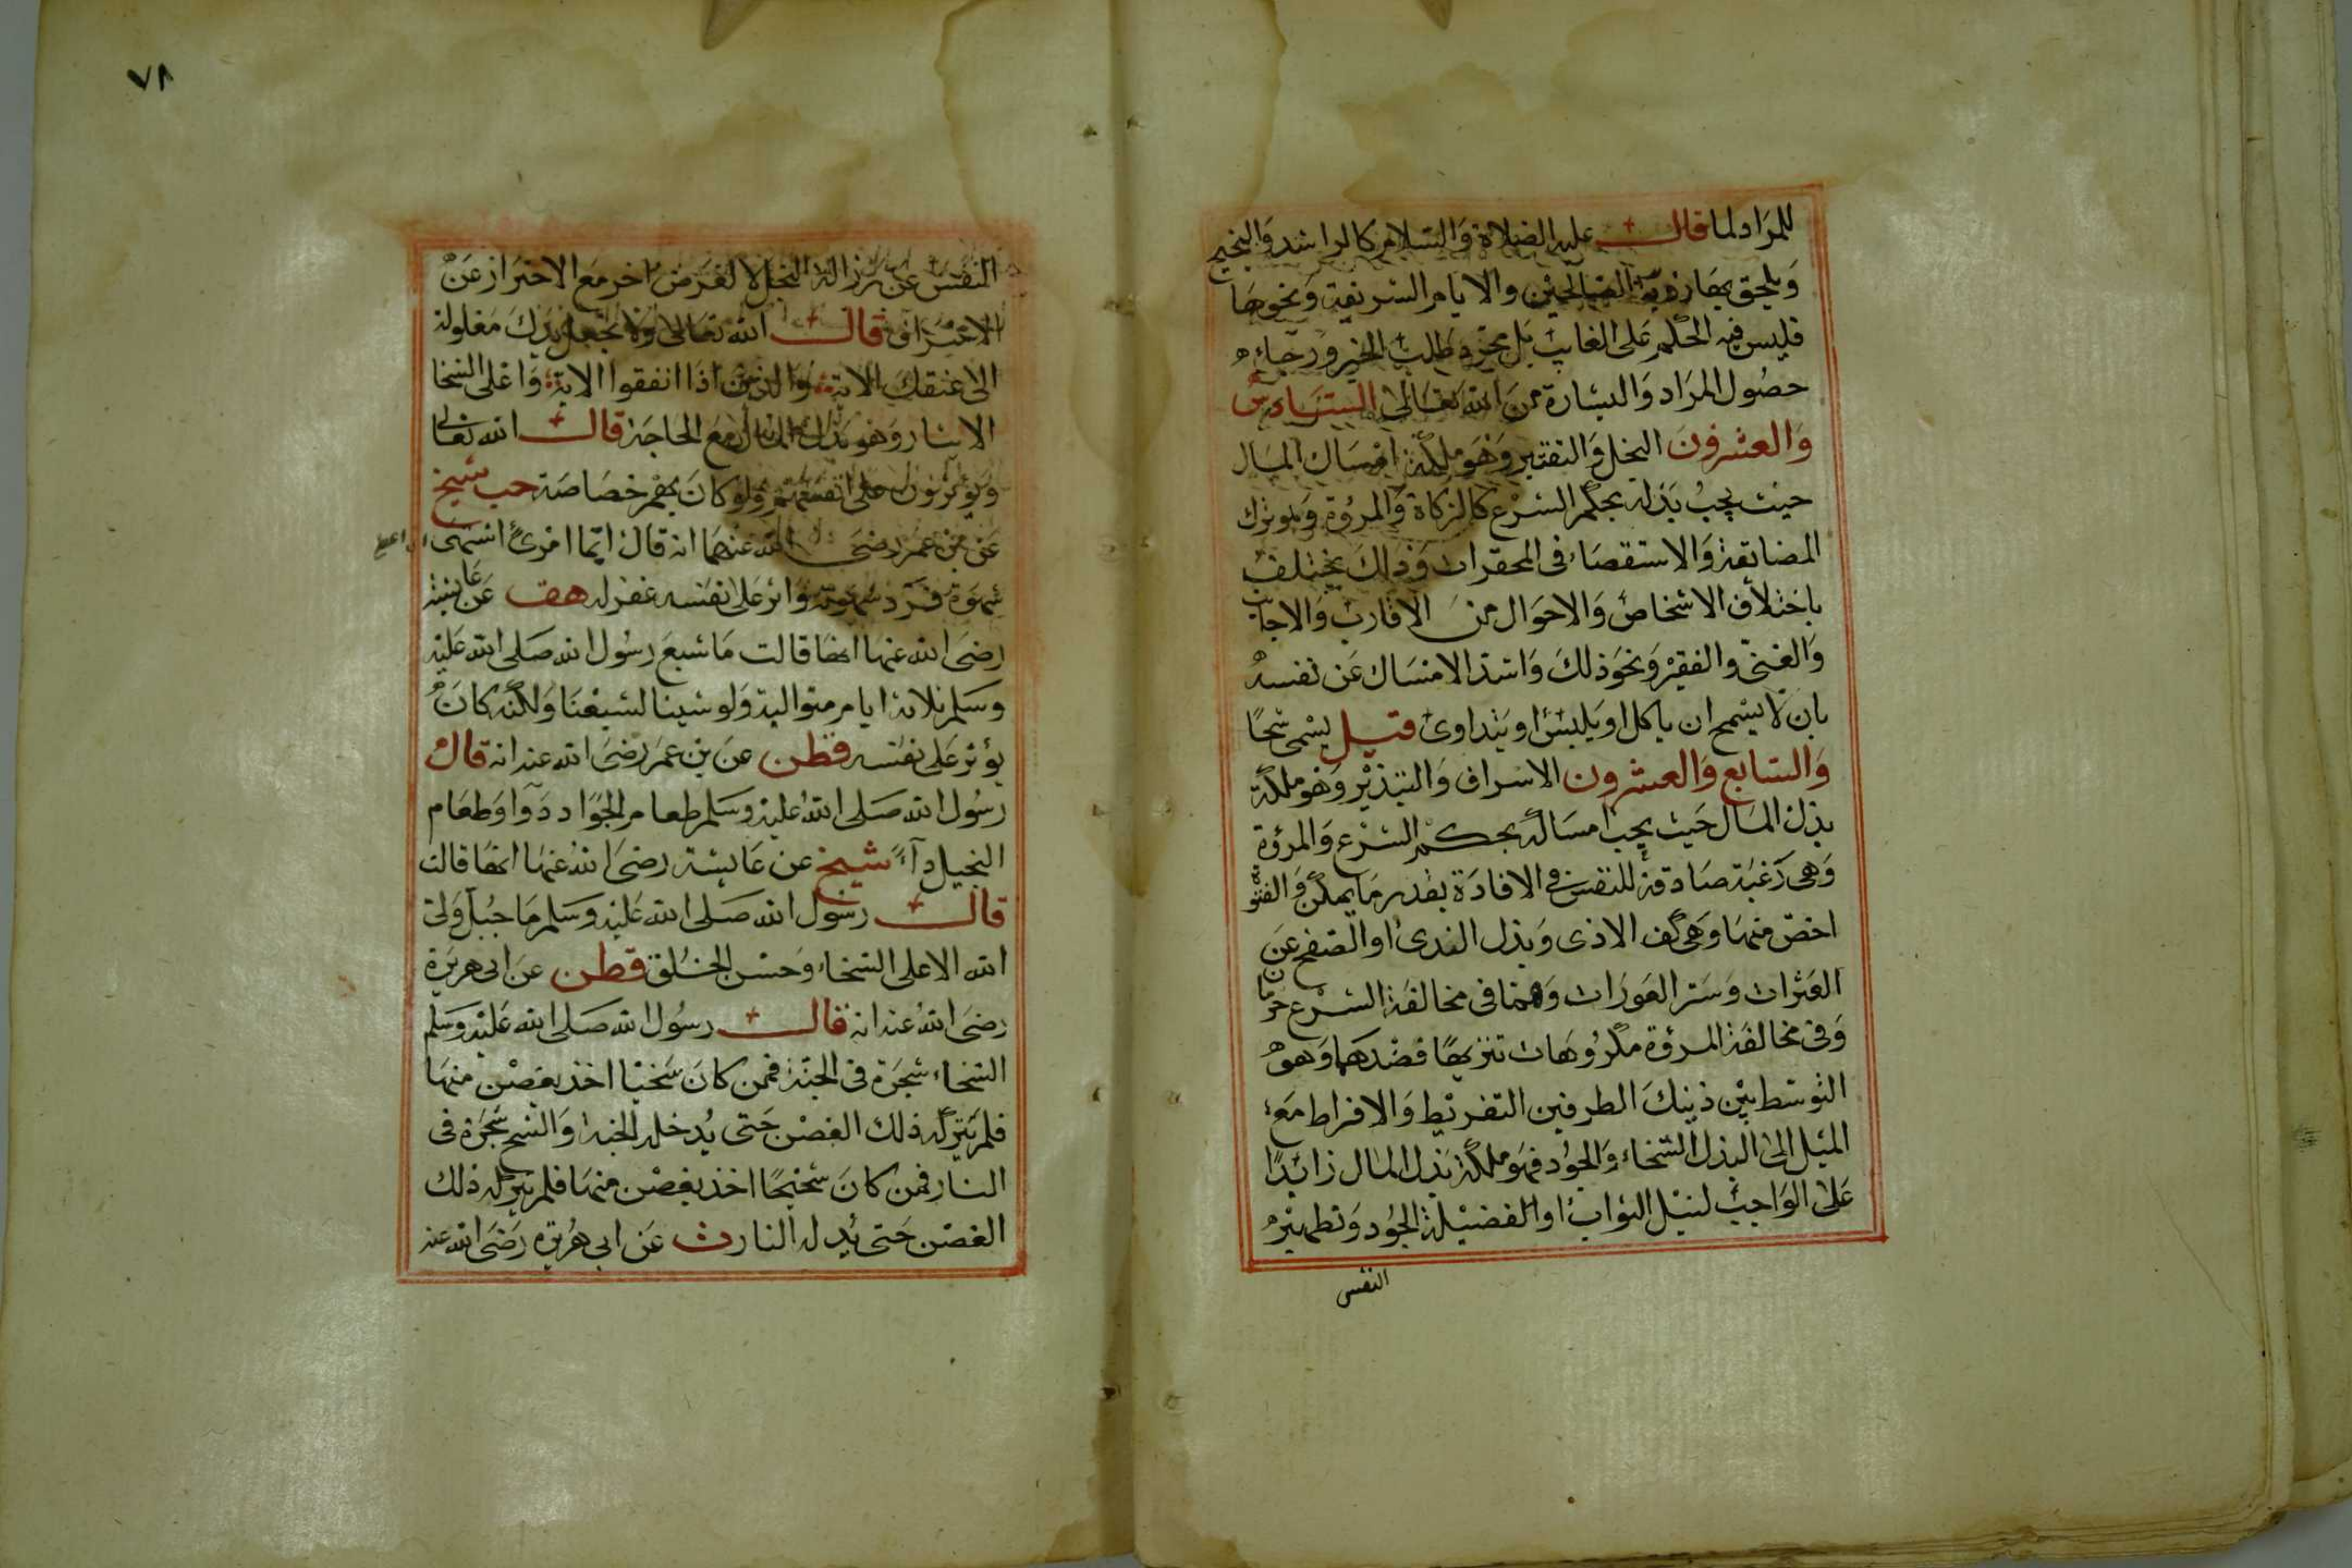 للمراد لما قال عليه الصلاة والسلام كالراشد والنجيح
ويلحق بها رؤية الصالحين والايام الشريفة ونحوها
فليس فيه الحكم على الغايب بل مجرد طلب الخير ورجاء
حصول المراد والبشارة من الله تعالى السادس
والعشرون البخل والتقتير وهو ملكة امساك المال
حيث يجب بذله بحكم الشرع كالزكاة والمروة وهو ترك
المضايقة والاستقصاء في المحقرات وذلك يختلف
باختلاف الاشخاص والاحوال من الاقارب والاجانب
والغني والفقير ونحو ذلك واشد الامساك عن نفسه
بان لا يسمح ان ياكل او يلبس او يتداوى قيل يسمى شحا
والسابع والعشرون الاسراف والتبذير وهو ملكة
بذل المال حيث يجب امساكه بحكم الشرع والمروة
وهي رغبة صادقة للنفس في الافادة بقدر ما يمكن والفتوة
اخص منها وهي كف الاذى وبذل الندى او الصفح عن
العثرات وستر العورات وهما في مخالفة الشرع حرمان
وفي مخالفة المروة مكروهات تنزيها فضدهما وهو
التوسط بين ذينك الطرفين التفريط والافراط مع
الميل الى البذل السخاء والجود فهو ملكة بذل المال زائدا
على الواجب لنيل الثواب او لفضيلة الجود وتطهير
النفس
٧٨
النفس عن رزالة البخل لا لغرض اخر مع الاحتراز عن
الاسراف قال الله تعالى ولا تجعل يدك مغلولة
الى عنقك الاية والذين اذا انفقوا الاية واعلى السخا
الايثار وهو بذل المال مع الحاجة قال الله تعالى
ويؤثرون على انفسهم ولو كان بهم خصاصة حب شيخ
عن بن عمر رضي الله عنهما انه قال ايما امرئ اشتهى
شهوة فرد شهوته واثر على نفسه غفر له هق عن عايشة
رضي الله عنها انها قالت ما شبع رسول الله صلى الله عليه
وسلم ثلاثة ايام متوالية ولو شينا لشبعنا ولكنه كان
يؤثر على نفسه قطن عن بن عمر رضي الله عنه انه قال
رسول الله صلى الله عليه وسلم طعام الجواد دوا وطعام
البخيل داء شيخ عن عايشة رضي الله عنها انها قالت
قال رسول الله صلى الله عليه وسلم ما جبل ولي
الله الا على السخاء وحسن الخلق قطن عن ابي هريرة
رضي الله عنه انه قال رسول الله صلى الله عليه وسلم
السخاء شجرة في الجنة فمن كان سخيا اخذ بغصن منها
فلم يتركه ذلك الغصن حتى يدخله الجنة والشح شجرة في
النار فمن كان شحيحا اخذ بغصن منها فلم يتركه ذلك
الغصن حتى يدله النار ث عن ابي هريرة رضي الله عنه